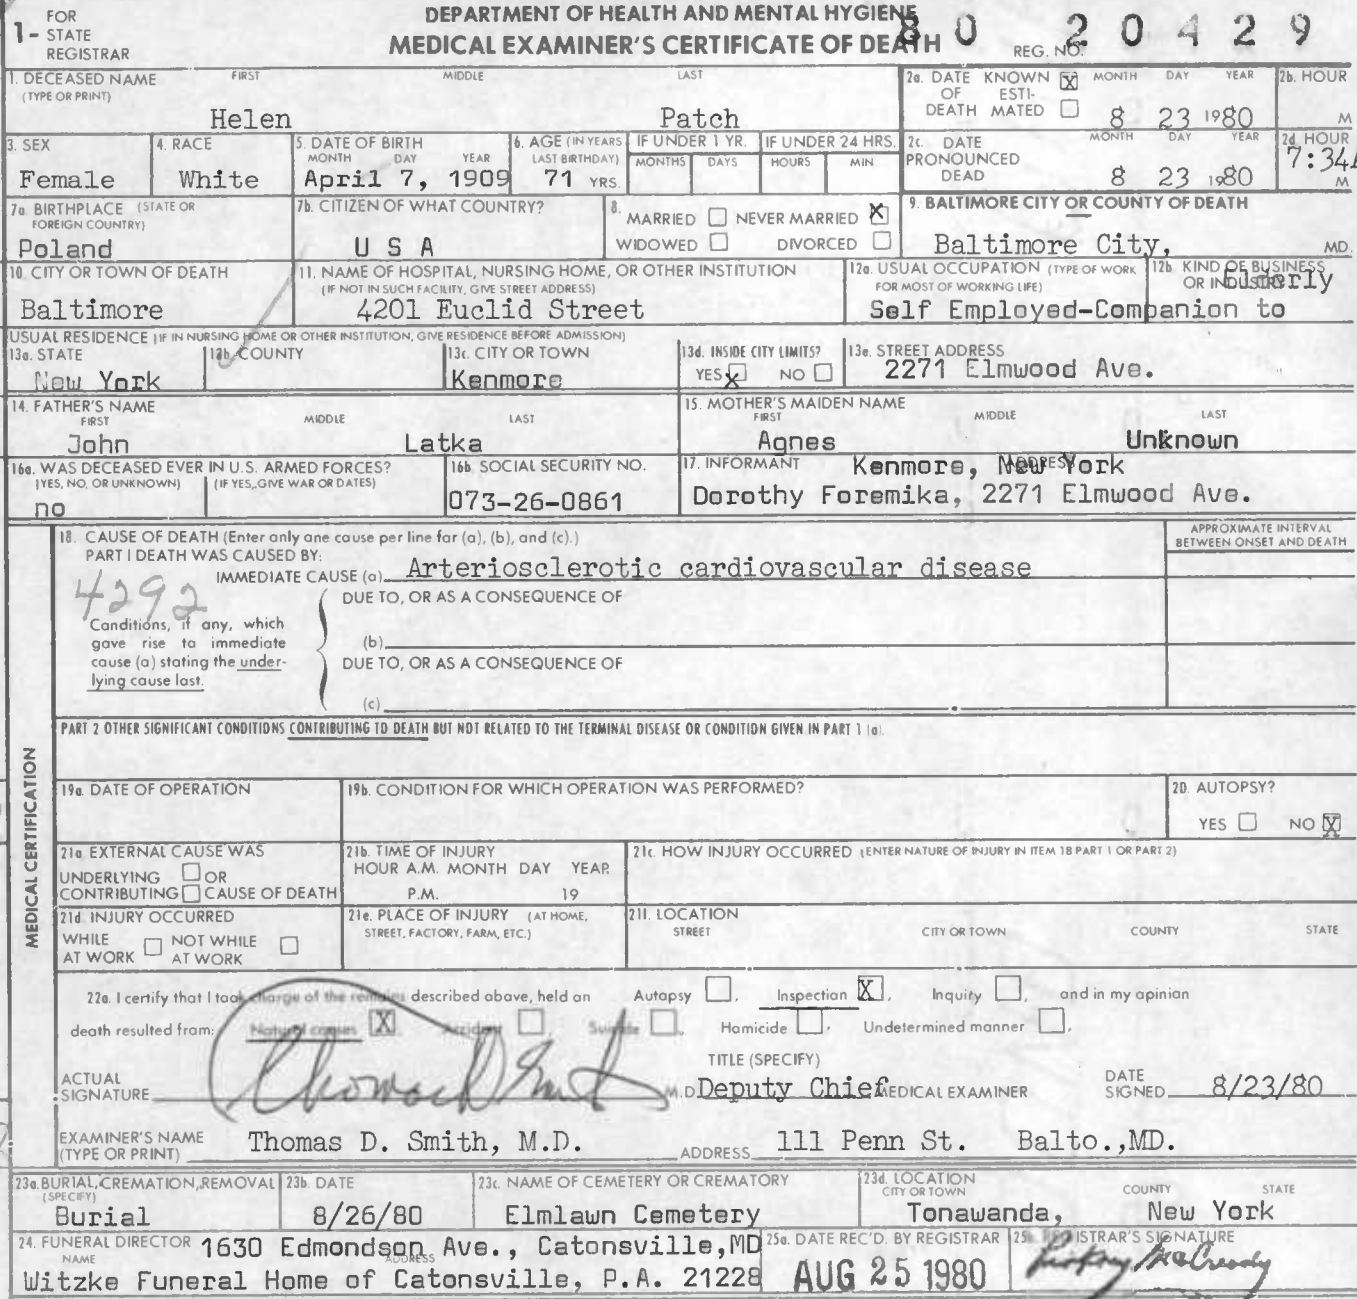 1- FOR STATE REGISTRAR
DEPARTMENT OF HEALTH AND MENTAL HYGIENE
MEDICAL EXAMINER'S CERTIFICATE OF DEATH
REG. NO. 80 20429
1. DECEASED NAME (TYPE OR PRINT) FIRST MIDDLE LAST
Helen Patch
2a. DATE OF DEATH KNOWN X ESTIMATED MONTH DAY YEAR
8 23 1980
2b. HOUR M
3. SEX
Female
4. RACE
White
5. DATE OF BIRTH MONTH DAY YEAR
April 7, 1909
6. AGE (IN YEARS LAST BIRTHDAY)
71 YRS.
IF UNDER 1 YR. MONTHS DAYS
IF UNDER 24 HRS. HOURS MIN
2c. DATE PRONOUNCED DEAD MONTH DAY YEAR
8 23 1980
2d. HOUR
7:34A M
7a. BIRTHPLACE (STATE OR FOREIGN COUNTRY)
Poland
7b. CITIZEN OF WHAT COUNTRY?
U S A
8. MARRIED NEVER MARRIED X
WIDOWED DIVORCED
9. BALTIMORE CITY OR COUNTY OF DEATH
Baltimore City, MD.
10. CITY OR TOWN OF DEATH
Baltimore
11. NAME OF HOSPITAL, NURSING HOME, OR OTHER INSTITUTION
(IF NOT IN SUCH FACILITY, GIVE STREET ADDRESS)
4201 Euclid Street
12a. USUAL OCCUPATION (TYPE OF WORK FOR MOST OF WORKING LIFE)
12b. KIND OF BUSINESS OR INDUSTRY
Self Employed-Companion to Elderly
USUAL RESIDENCE (IF IN NURSING HOME OR OTHER INSTITUTION, GIVE RESIDENCE BEFORE ADMISSION)
13a. STATE
New York
13b. COUNTY
13c. CITY OR TOWN
Kenmore
13d. INSIDE CITY LIMITS?
YES X NO
13e. STREET ADDRESS
2271 Elmwood Ave.
14. FATHER'S NAME FIRST MIDDLE LAST
John Latka
15. MOTHER'S MAIDEN NAME FIRST MIDDLE LAST
Agnes Unknown
16a. WAS DECEASED EVER IN U.S. ARMED FORCES?
(YES, NO, OR UNKNOWN) (IF YES, GIVE WAR OR DATES)
no
16b. SOCIAL SECURITY NO.
073-26-0861
17. INFORMANT ADDRESS
Kenmore, New York
Dorothy Foremika, 2271 Elmwood Ave.
MEDICAL CERTIFICATION
18. CAUSE OF DEATH (Enter only one cause per line for (a), (b), and (c).)
PART I DEATH WAS CAUSED BY:
IMMEDIATE CAUSE (a) Arteriosclerotic cardiovascular disease
APPROXIMATE INTERVAL BETWEEN ONSET AND DEATH
4292
DUE TO, OR AS A CONSEQUENCE OF
Conditions, if any, which gave rise to immediate cause (a) stating the underlying cause last.
(b)
DUE TO, OR AS A CONSEQUENCE OF
(c)
PART 2 OTHER SIGNIFICANT CONDITIONS CONTRIBUTING TO DEATH BUT NOT RELATED TO THE TERMINAL DISEASE OR CONDITION GIVEN IN PART 1 (a).
19a. DATE OF OPERATION
19b. CONDITION FOR WHICH OPERATION WAS PERFORMED?
20. AUTOPSY?
YES NO X
21a. EXTERNAL CAUSE WAS
UNDERLYING OR
CONTRIBUTING CAUSE OF DEATH
21b. TIME OF INJURY
HOUR A.M. MONTH DAY YEAR
P.M. 19
21c. HOW INJURY OCCURRED (ENTER NATURE OF INJURY IN ITEM 18 PART 1 OR PART 2)
21d. INJURY OCCURRED
WHILE AT WORK NOT WHILE AT WORK
21e. PLACE OF INJURY (AT HOME, STREET, FACTORY, FARM, ETC.)
21f. LOCATION
STREET CITY OR TOWN COUNTY STATE
22a. I certify that I took charge of the remains described above, held an Autopsy , Inspection X , Inquiry , and in my opinion
death resulted from: Natural causes X , Accident , Suicide , Homicide , Undetermined manner .
ACTUAL SIGNATURE Thomas D Smith M.D.
TITLE (SPECIFY)
Deputy Chief MEDICAL EXAMINER
DATE SIGNED 8/23/80
EXAMINER'S NAME (TYPE OR PRINT) Thomas D. Smith, M.D.
ADDRESS 111 Penn St. Balto.,MD.
23a. BURIAL, CREMATION, REMOVAL (SPECIFY)
Burial
23b. DATE
8/26/80
23c. NAME OF CEMETERY OR CREMATORY
Elmlawn Cemetery
23d. LOCATION CITY OR TOWN COUNTY STATE
Tonawanda, New York
24. FUNERAL DIRECTOR NAME ADDRESS
1630 Edmondson Ave., Catonsville,MD
Witzke Funeral Home of Catonsville, P.A. 21228
25a. DATE REC'D. BY REGISTRAR
AUG 25 1980
25b. REGISTRAR'S SIGNATURE